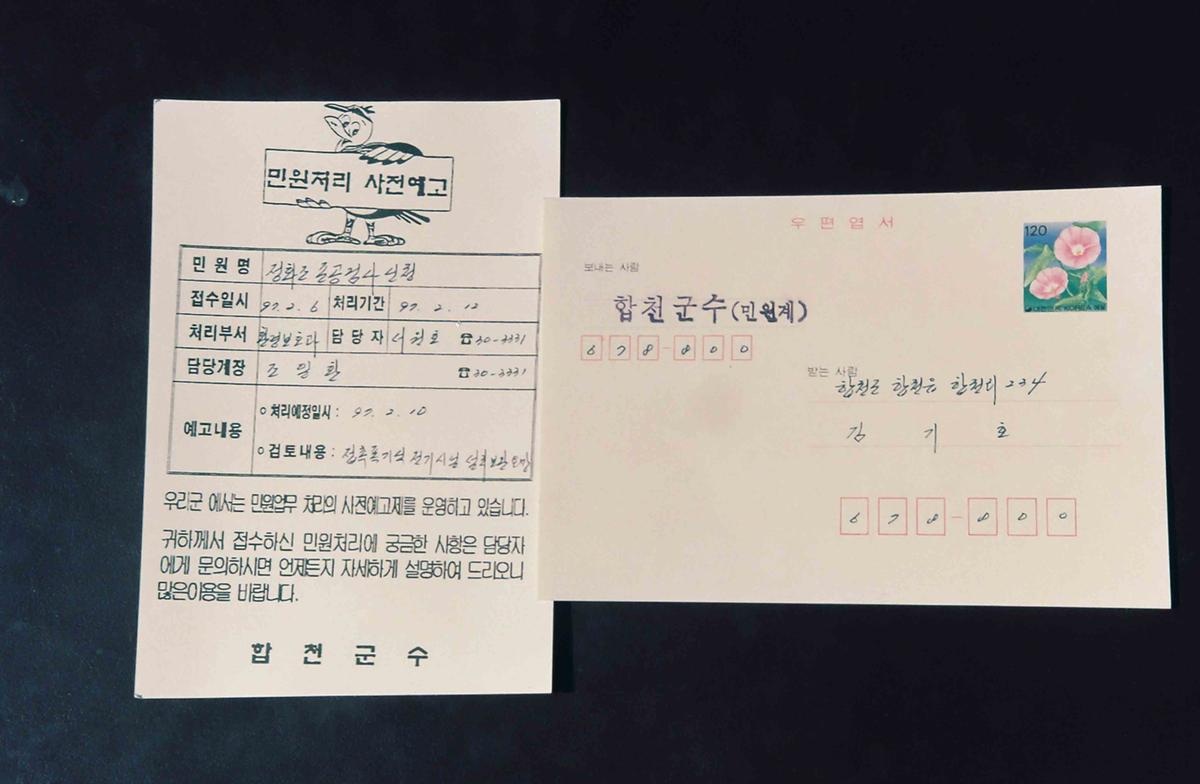 민원처리 사전예고
민원명 정화조 준공검사 신청
접수일시 97. 2. 6 처리기간 97. 2. 12
처리부서 환경보호과 담당자 서원호 ☎30-3331
담당계장 조일환 ☎30-3331
예고내용
○처리예정일시 : 97. 2. 10
○검토내용 : 접촉폭기식 전기시설
우리군 에서는 민원업무 처리의 사전예고제를 운영하고 있습니다.
귀하께서 접수하신 민원처리에 궁금한 사항은 담당자
에게 문의하시면 언제든지 자세하게 설명하여 드리오니
많은이용을 바랍니다.
합천군수
우편엽서
120
대한민국 KOREA 우표
보내는 사람
합천군수(민원계)
678-800
받는 사람
합천군 합천읍 합천리 234
김기호
678-800